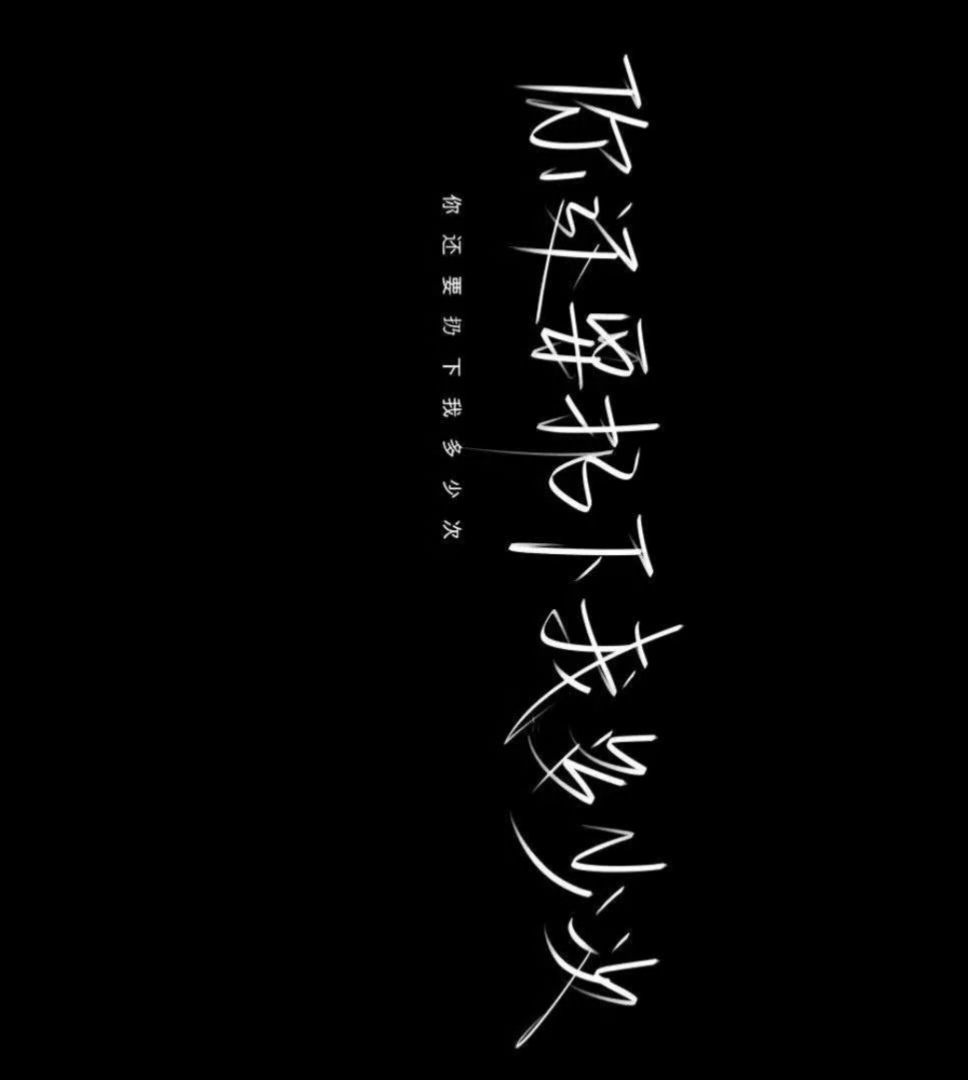 你还要扔下我多少次
你还要扔下我多少次